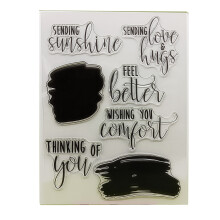 SENDING
sunshine
SENDING
love
&
hugs
FEEL
better
WISHING YOU
comfort
THINKING OF
you